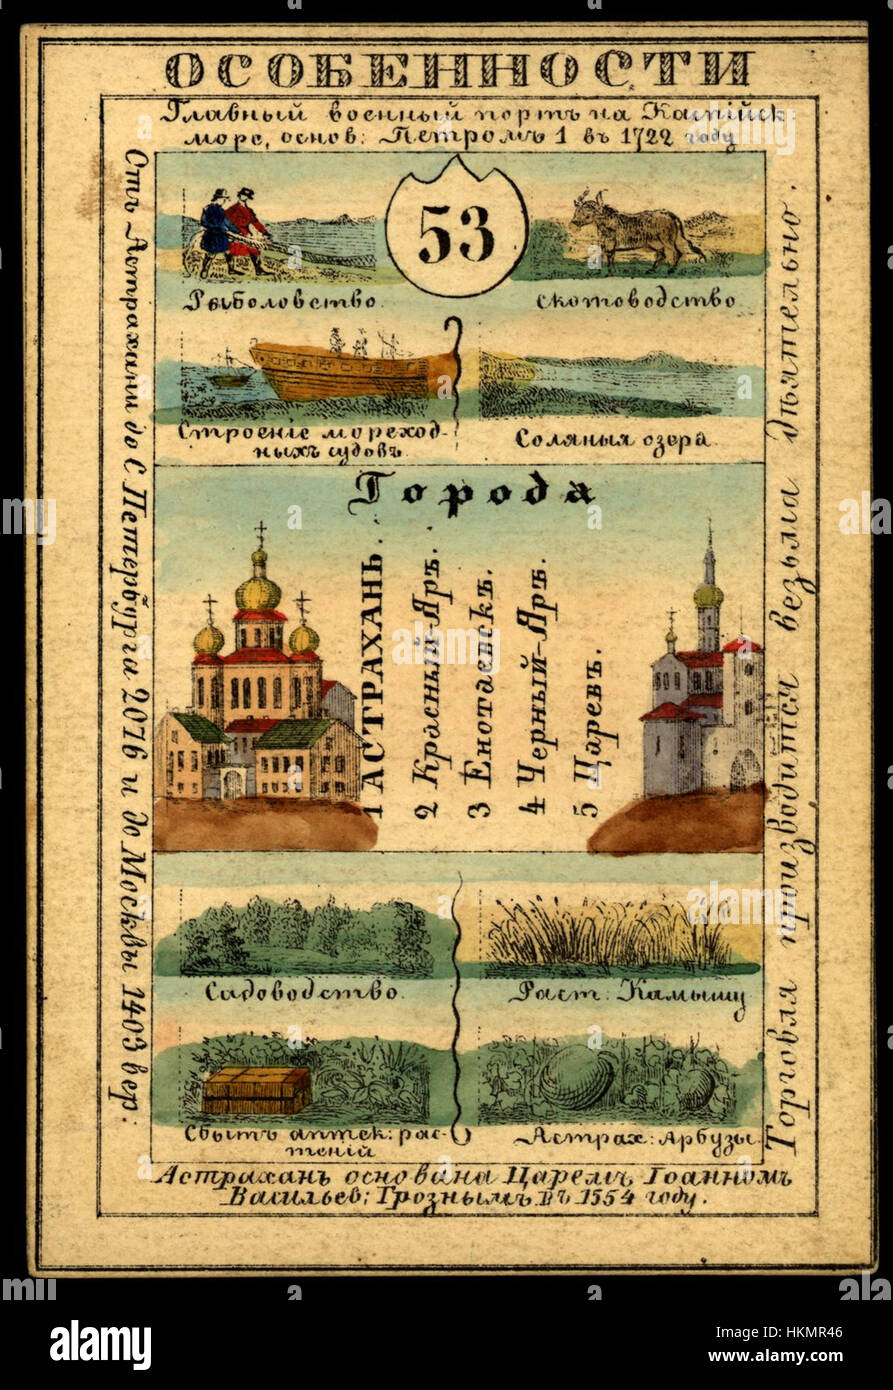 ОСОБЕННОСТИ
Главный военный портъ на Каспійск:
море, основ: Петромъ 1 въ 1722 году
53
Рыболовство.
Скотоводство.
Строеніе мореход-
ныхъ судовъ.
Соляныя озера.
Города
1 АСТРАХАНЬ.
2 Красный-Яръ.
3 Енотаевскъ.
4 Черный-Яръ.
5 Царевъ.
Садоводство.
Раст: Камышу
Сбытъ аптек: рас-
теній
Астрах: Арбузы.
Отъ Астрахани до С Петербурга 2076 и до Москвы 1403 вер:
Торговля производится весьма дѣятельно.
Астрахань основана Царемъ Іоанномъ
Васильев: Грознымъ въ 1554 году.
a
alamy stock photo
HKMR46
www.alamy.com